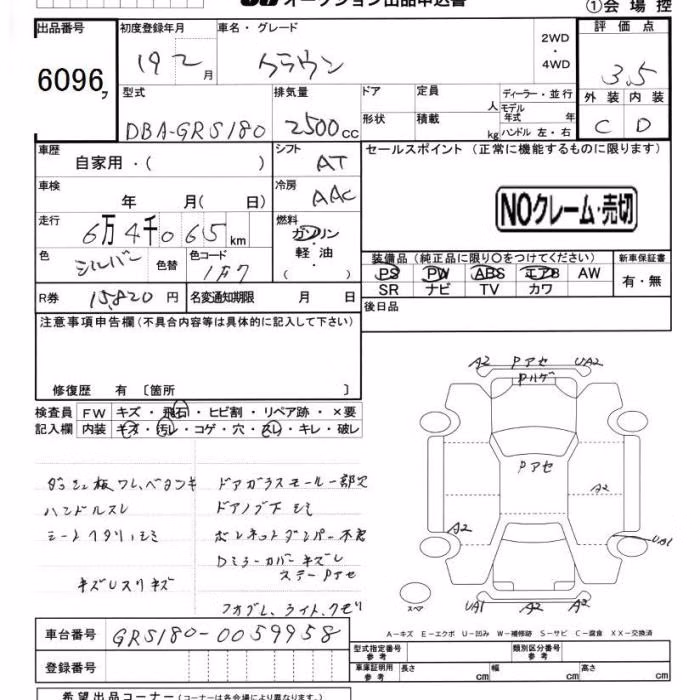 オークション出品申込書
①会場控
出品番号
6096
初度登録年月
19 2 月
車名・グレード
クラウン
2WD
・
4WD
評価点
3.5
外装 内装
C D
型式
DBA-GRS180
排気量
2500 cc
ドア
定員 人
形状
積載 kg
ディーラー・並行
モデル年式 年
ハンドル 左・右
車歴
自家用・( )
シフト
AT
セールスポイント (正常に機能するものに限ります)
NOクレーム・売切
車検
年 月( 日)
冷房
AAC
走行
6万4千065 km
燃料
ガソリン
・
軽油
・
色
シルバー
色替
色コード
1F7
装備品 (純正品に限り○をつけてください)
新車保証書
PS PW ABS エアB AW
有・無
SR ナビ TV カワ
R券 15,820 円
名変通知期限 月 日
後日品
注意事項申告欄 (不具合内容等は具体的に記入して下さい)
修復歴 有 〔箇所 〕
検査員
記入欄
FW キズ・飛石・ヒビ割・リペア跡・×要
内装 キズ・汚レ・コゲ・穴・スレ・キレ・破レ
ダッシュ板ワレ、ベタツキ
ハンドルスレ
シートヘタリ、シミ
キズレスリキズ
ドアガラスモール一部欠
ドアノブ下シミ
ボンネットダンパー不良
Dミラーカバーキズレ
ステーPアセ
フォグブレ、ライトクモリ
A2 Pアセ UA2
Pハゲ
Pアセ
A2
A2
UA1
スペア
UA1 A2 A2
A-キズ E-エクボ U-凹み W-補修跡 S-サビ C-腐食 XX-交換済
車台番号 GRS180-0059958
登録番号
型式指定番号 参考
類別区分番号 参考
車庫証明用 参考
長さ cm 幅 cm 高さ cm
希望出品コーナー (コーナーは各会場により異なります)